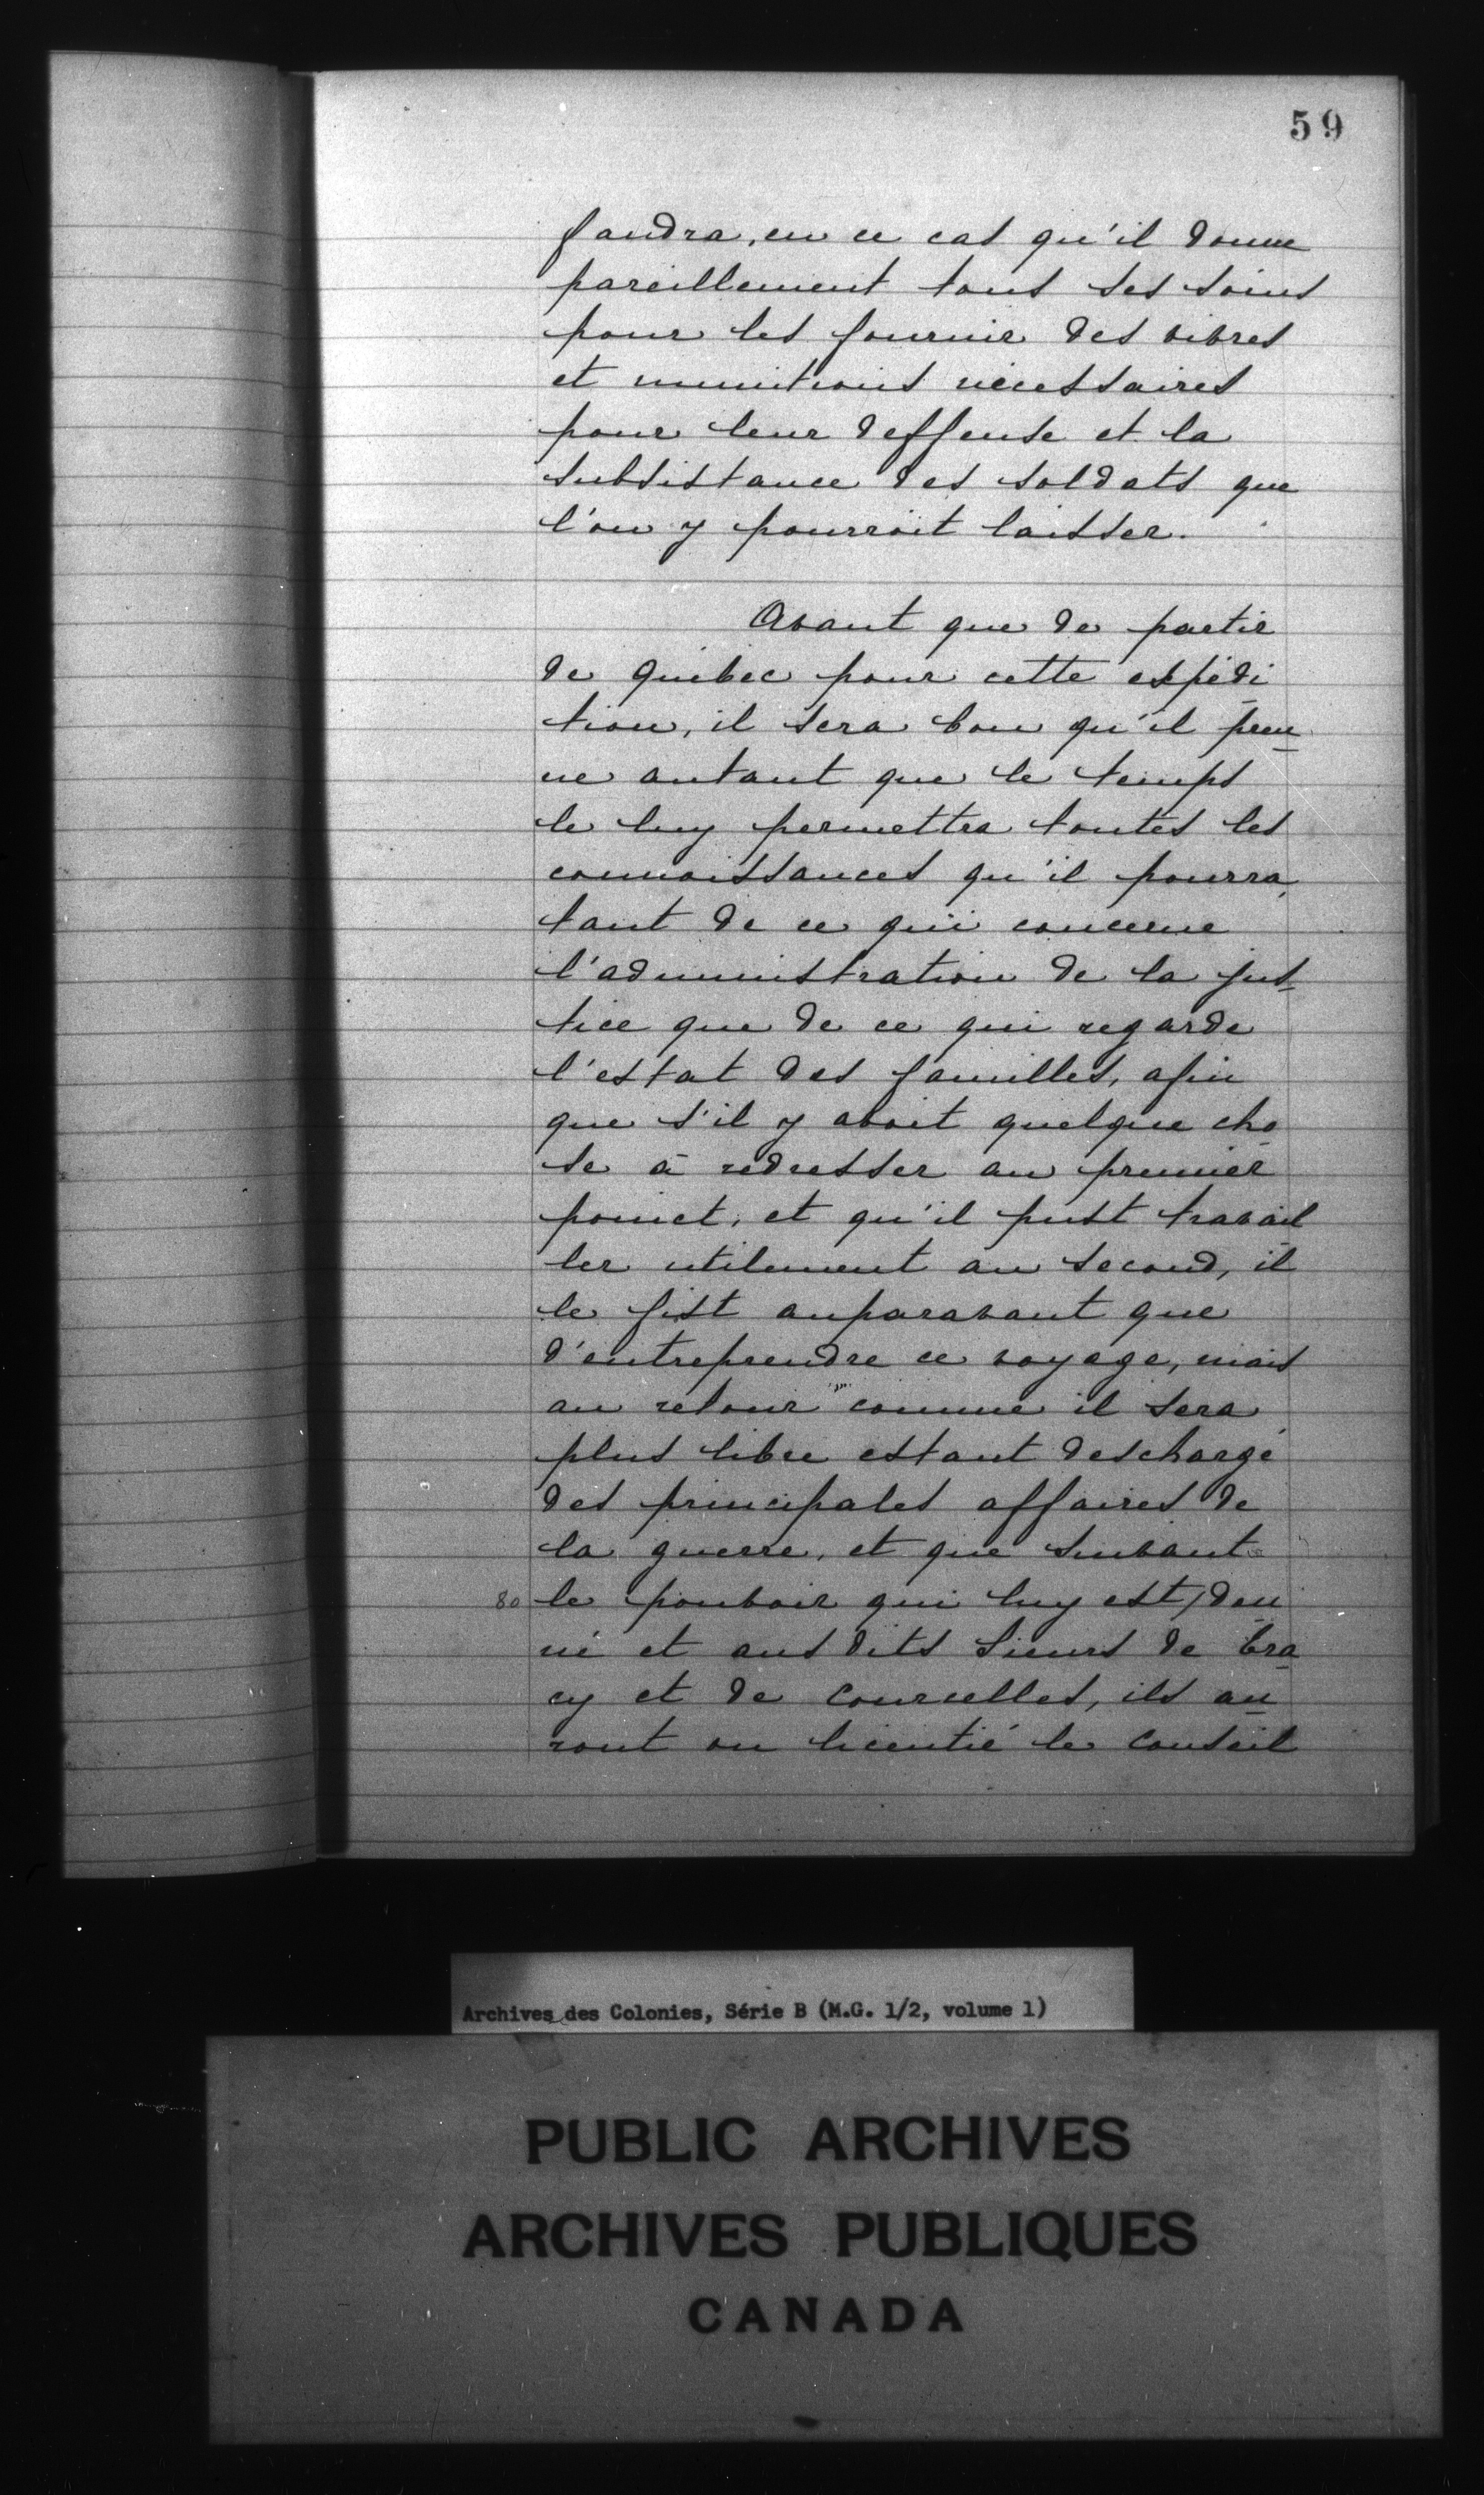 59
faudra, en ce cas qu'il donne
pareillement tous ses soins
pour les fournir des vivres
et munitions nécessaires
pour leur deffense et la
subsistance des soldats que
l'on y pourroit laisser.
Avant que de partir
de québec pour cette expédi
tion, il sera bon qu'il pren
ne autant que le temps
le luy permettra toutes les
connoissances qu'il pourra,
tant de ce qui concerne
l'administration de la jus
tice que de ce qui regarde
l'estat des familles, afin
que s'il y avoit quelque cho
se à redresser au premier
poinct, et qu'il pust travail
ler utilement au second, il
le fist auparavant que
d'entreprendre ce voyage, mais
au retour comme il sera
plus libre estant deschargé
des principales affaires de
la guerre, et que suivant
80 le pouvoir qui luy est / don
né et aus dits Sieurs de Tra
cy et de Courcelles, ils au
ront ou licentié le Conseil
Archives des Colonies, Série B (M.G. 1/2, volume 1)
PUBLIC ARCHIVES
ARCHIVES PUBLIQUES
CANADA